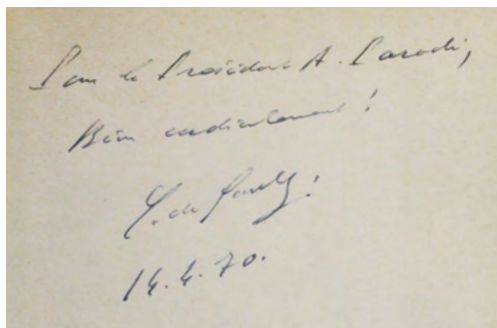 Pour le Président A. Parodi,
Bien cordialement !
C. de Gaulle.
14.4.70.